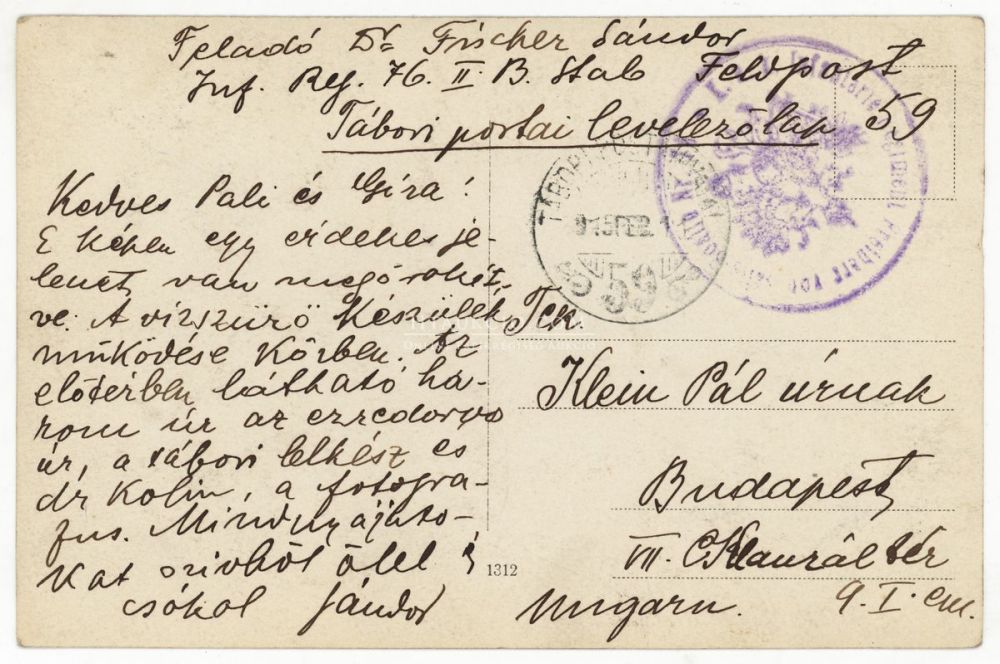 Feladó Dr Fischer Sándor
Inf. Reg. 76. II. B. Stab Feldpost 59
Tábori portai levelezőlap
Kedves Pali és Giza!
E képen egy érdekes je-
lenet van megörökit-
ve. A vízszürő készülék
működése közben. Az
előtérben látható há-
rom úr az ezredorvos
úr, a tábori lelkész és
dr Kolin, a fotogra-
fus. Mindnyájato-
kat szivből ölel s
csókol Sándor
TÁBORI
59
Tek.
Klein Pál úrnak
Budapest
VII. Klauzál tér
9. I. em.
Ungarn.
1312